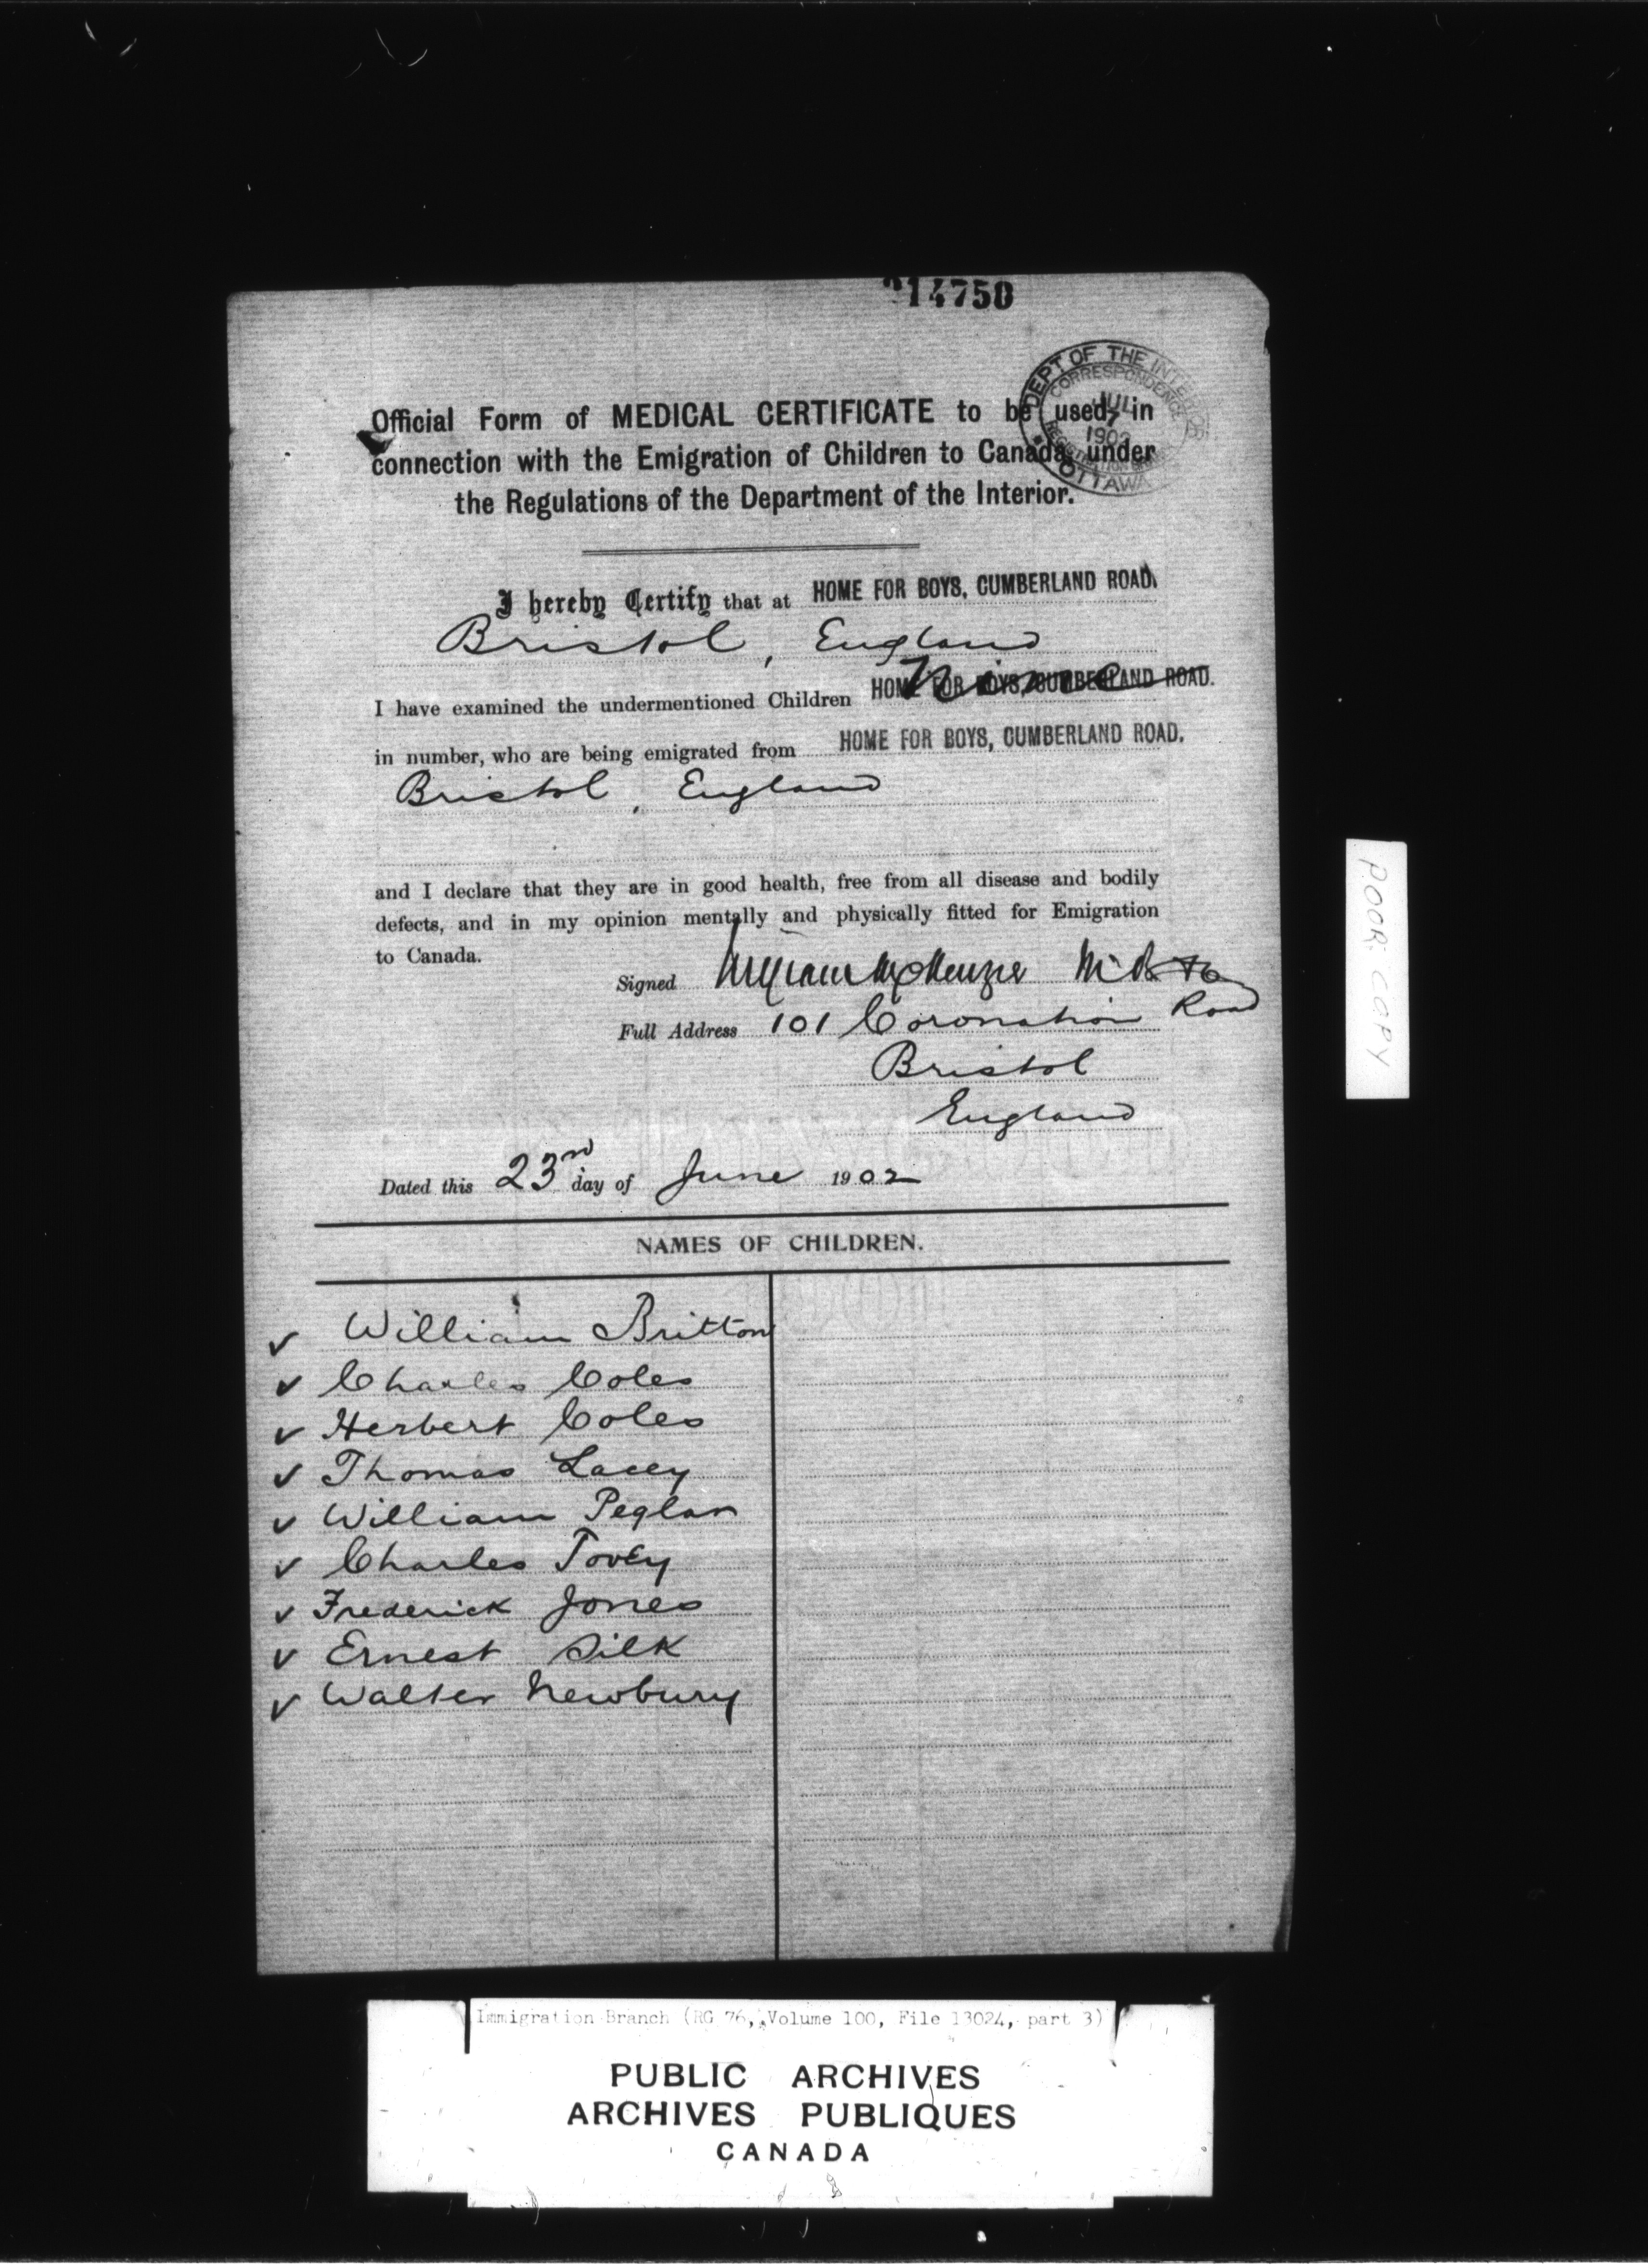 214750
DEPT OF THE INTERIOR
CORRESPONDENCE
JUL
7
1902
REGISTRATION
OTTAWA
Official Form of MEDICAL CERTIFICATE to be used, in
connection with the Emigration of Children to Canada, under
the Regulations of the Department of the Interior.
I hereby Certify that at HOME FOR BOYS, CUMBERLAND ROAD.
Bristol, England
I have examined the undermentioned Children HOME FOR BOYS, CUMBERLAND ROAD. Nine
in number, who are being emigrated from HOME FOR BOYS, CUMBERLAND ROAD.
Bristol, England
and I declare that they are in good health, free from all disease and bodily
defects, and in my opinion mentally and physically fitted for Emigration
to Canada.
Signed William McKenzie
Full Address 101 Coronation Road
Bristol
England
Dated this 23rd day of June 1902
NAMES OF CHILDREN.
✓ William Britton
✓ Charles Coles
✓ Herbert Coles
✓ Thomas Lacey
✓ William Peglar
✓ Charles Tovey
✓ Frederick Jones
✓ Ernest Silk
✓ Walter Newbury
POOR COPY
Immigration Branch (RG 76, Volume 100, File 13024, part 3)
PUBLIC ARCHIVES
ARCHIVES PUBLIQUES
CANADA